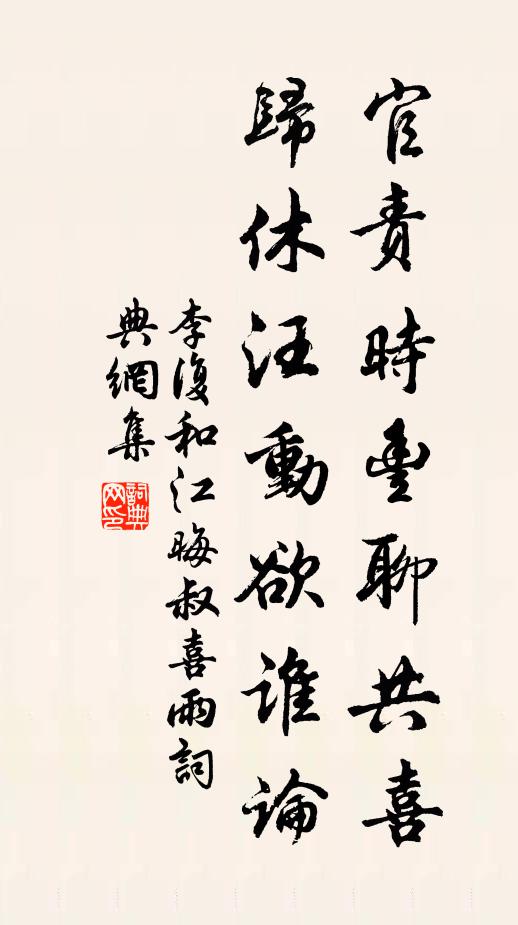 官責時豊聊共喜
歸休汪動欲誰論
李復和江晦叔喜雨詞
典網集
詞典網印